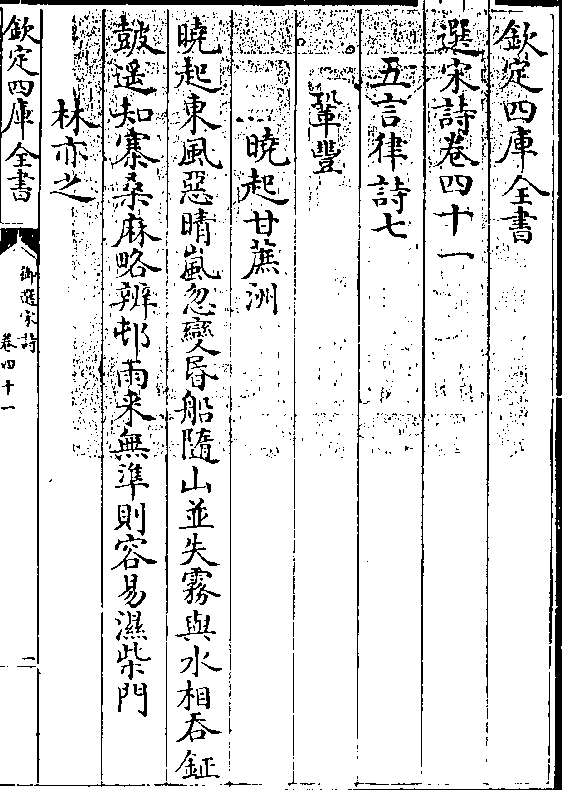 欽定四庫全書
選宋詩卷四十一
五言律詩七
鞏豐
曉起甘蔗洲
曉起東風惡晴嵐忽變昏船隨山並失霧與水相吞鉦
鼓遥知寨桑麻略辨邨雨来無準則容易濕柴門
林亦之
欽定四庫全書
御選宋詩
卷四十一
一